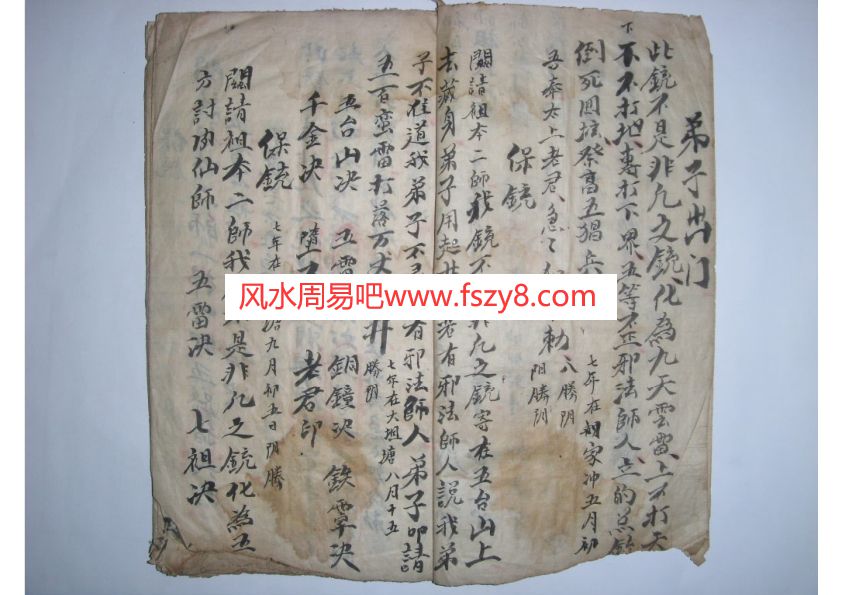 弟子出门
此銃不是非凡之銃化為九天雲雷上不打天
下不打地專打下界五等不正邪法師人
倒死回壇祭高五猖兵
吾奉太上老君急急 勅
七年在胡家冲五月初
八勝阴
阳勝阴
保銃
闗請祖本二師我銃不 非凡之銃寄在五台山上
去藏身弟子用起 若有邪法師人説我弟
子不准道我弟子不 有邪法師人弟子叩請
五百蛮雷打落万丈 井
七年在大坦塘八月十五
勝阴
五台山决 五雷 銅鐘决 鉄寧决
千金决 老君印
保銃
七年在 塘九月初五日阴勝
闗請祖本二師我 是非凡之銃化為五
方討 仙師 五雷决 七祖决
风水周易吧www.fszy8.com